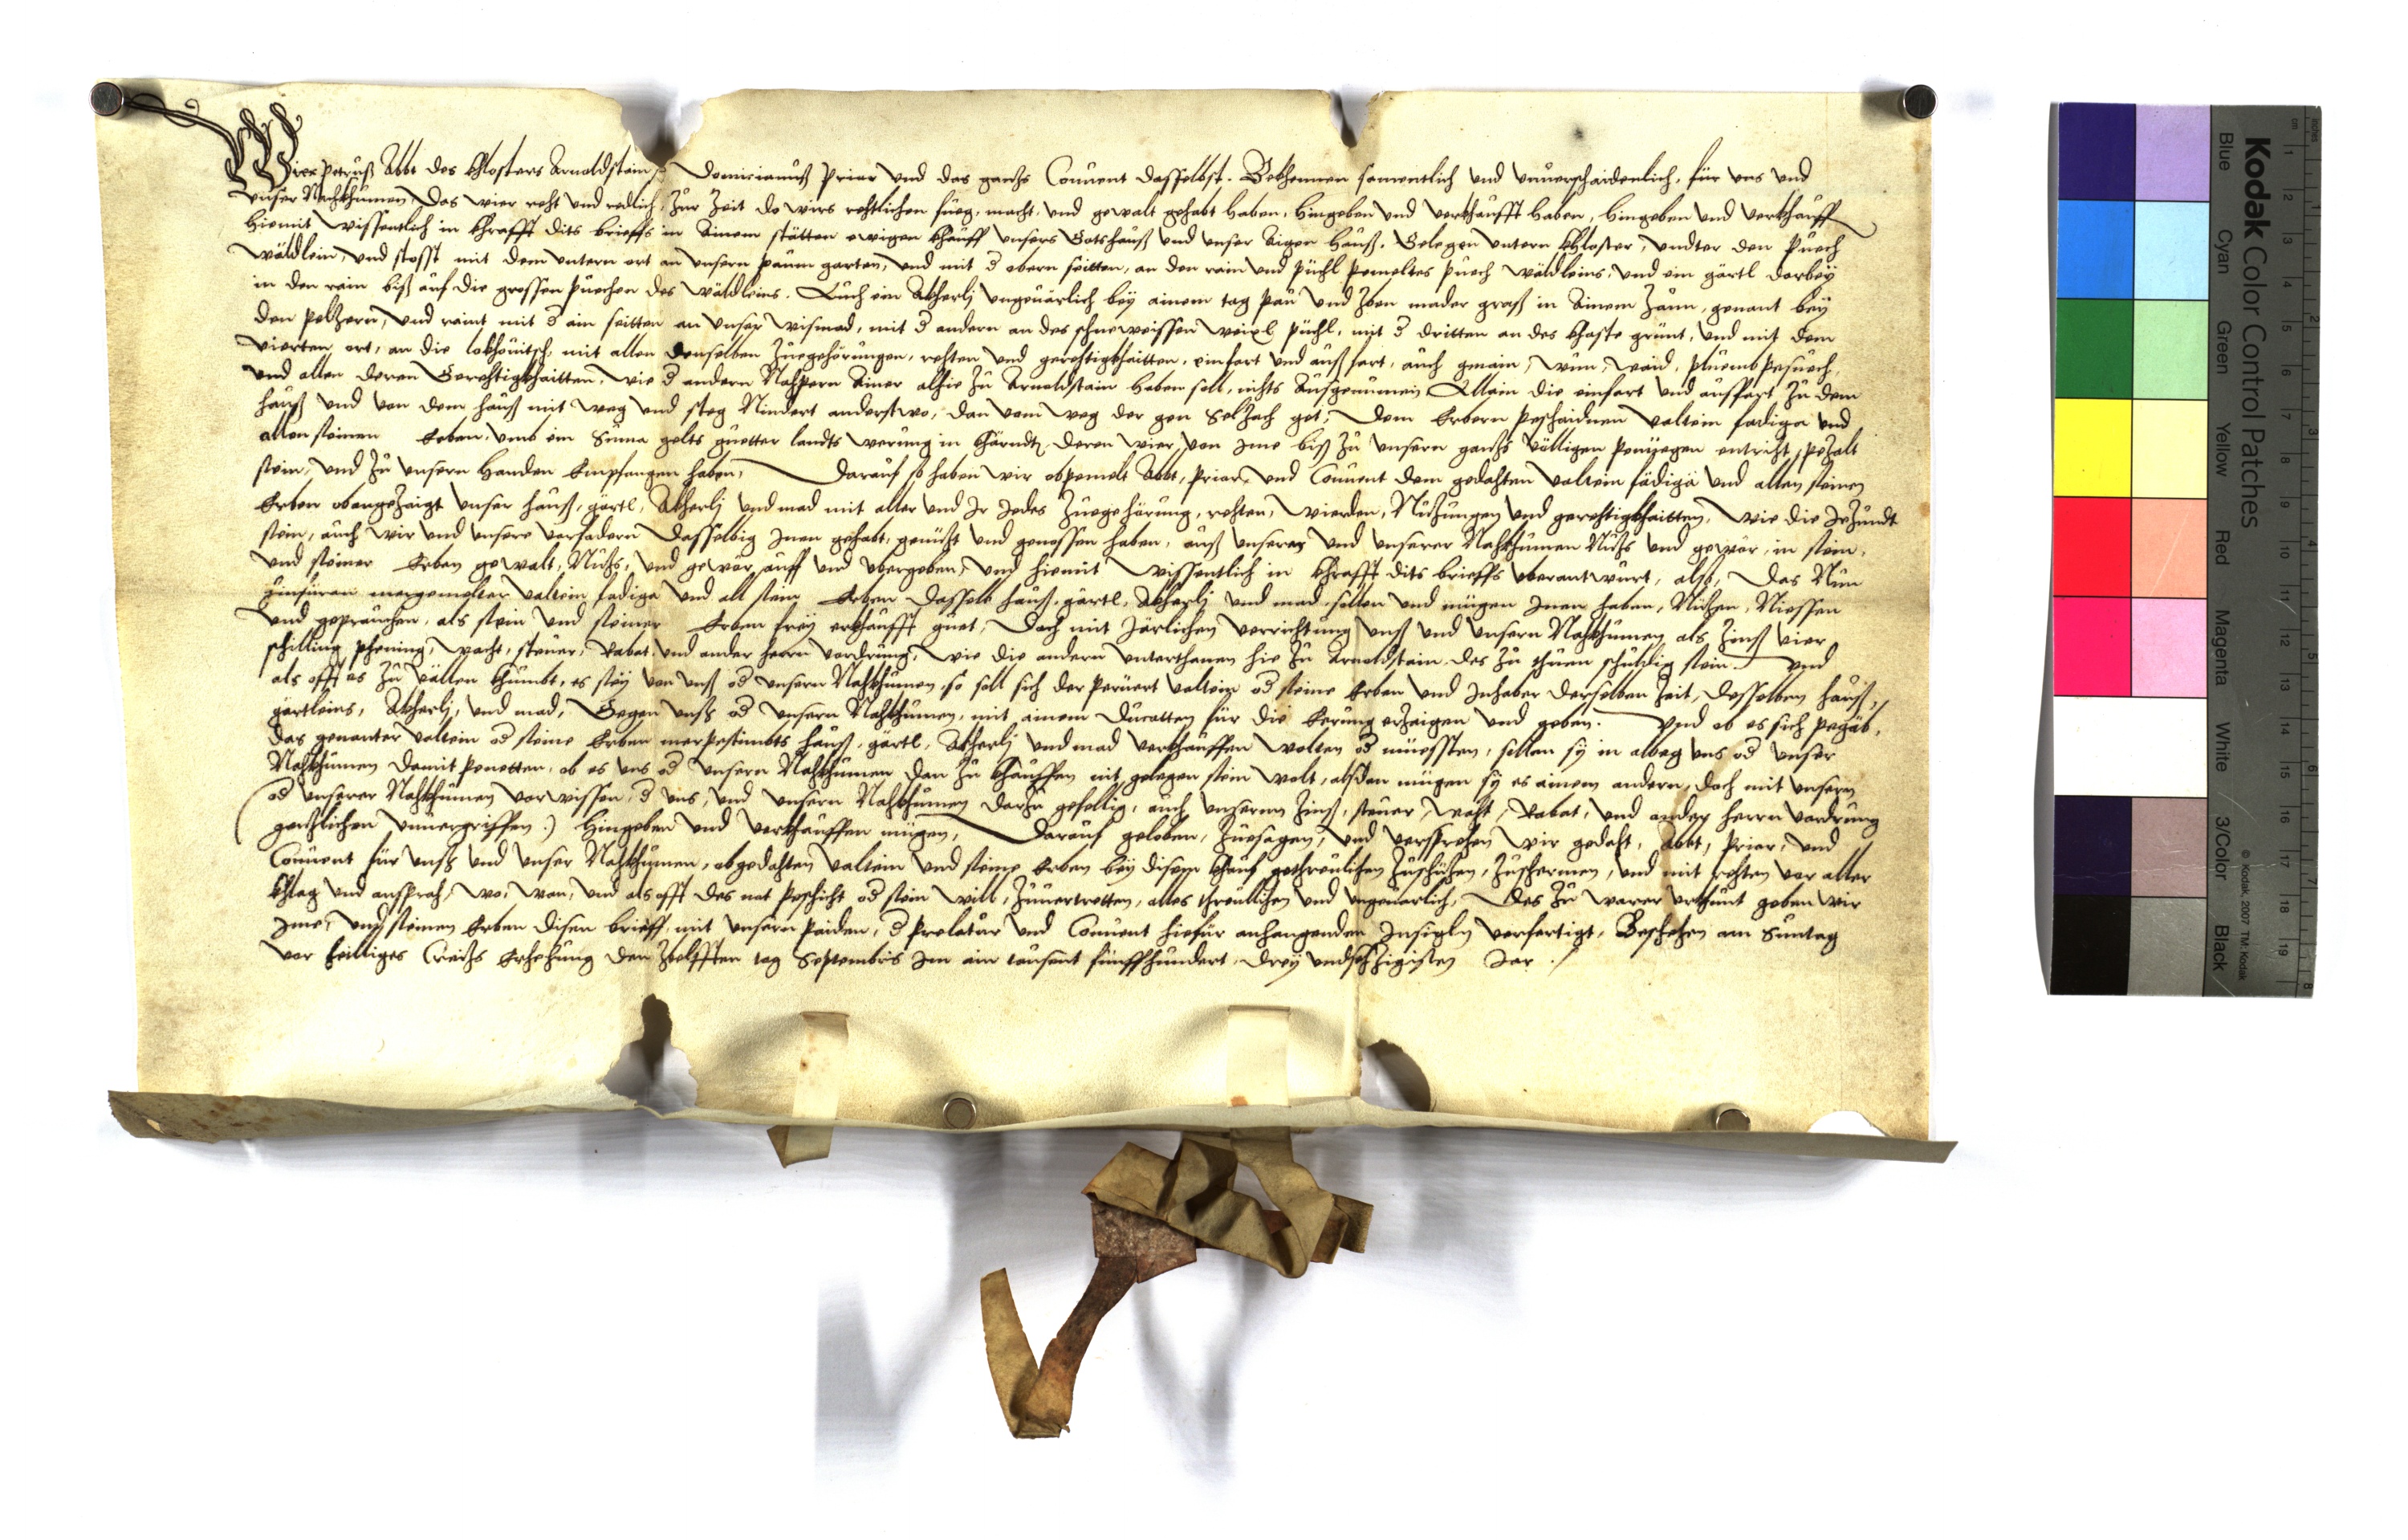 Wier Petruß Abbt des Closters Arnoldstain, Domicianuß Prior und das gantz Convent dasselbst. Bekhennen samentlich und unverschaidenlich, für uns und
unser Nachkhumen, Das wier recht und redlich, zur Zeit do wirs rechtlichen fueg, macht, und gewalt gehabt haben, hingeben und verkhaufft haben, hingeben und verkhauffn
hiemit wissentlich in khrafft dits brieffs in Ainem stätten ewigen khauff unsers Gotshauß und unser Aigen hauß. Gelegen untern Khloster, undter den Puech
wäldlein, und stosst mit dem untern ort an unsern paum garten, und mit d obern seitten, an den rain und püchl pemeltes Puech wäldleins, und ein gärtl darbey
in den rain biß auf die grossen Puechen des wäldleins. Auch ein Akherlj ungevärlich bey ainem tag pau und zben mader graß in Ainem zaun, genant bey
den Pelzern, und raint mit d ain seitten an unser wismad, mit d andern an des schneweissen weixl püchl, mit d dritten an des khaste grünt, und mit dem
vierten ort, an die lokhouitsch, mit allen denselben Zuegehörungen, rechten und gerechtigkhaitten, einfart und auß fart, auch gemain, wun, waid, pluemb pesuech,
und allen deren Gerechtigkhaitten, wie d andern Nachpern Ainer alhie zu Arnoldstain haben soll, nichts Ausgenumen Allain die einfart und ausfart zu dem
hauß und von dem hauß mit weg und steg Nindert anderstwo, dan vom weg der gen Selzach get, Dem Erbern Peschaidnen valtein fadiga und
allen seinen Erben, umb ein Suma gelts guetter landts werung in Khärndtn. Deren wier, von Ime biß zu unsern gantz völligen Penüegen entricht, pezalt
sein, und zu unsern handen Empfangen haben, Darauf so haben wir obpemelt Abbt, Prior, und Convent dem gedachten valtein fädigä und allen seinen
Erben obangezaigt unser hauß, gärtl, Akherlj und mad mit aller und Ir Iedes Zuegehörung, rechten, wierden, Nützungen und gerechtigkhaitten, wie die Iezundt
sein, auch wir und unsere vorfadern dasselbig Innen gehabt, genützt und genossen haben, auß unserer und unserer Nachkhumen Nutz und gewör, in sein,
und seiner Erben gewalt, Nutz, und gewör auff und ubergeben, und hiemit wissentlich in khrafft dits brieffs uberantwurt, also, Das Nun
hinfüran mergemelter valtein fadiga und all sein Erben dasselb hauß, gärtl, Akherlj und mad sollen und mügen Innen haben, Nützen, Niessen
und geprauchen, als sein und seiner Erben frey erkhaufft guet, Doch mit Järlichen verrichtung unß und unsern Nachkhumen als Zinß vier
schilling phening, wacht, steuer, Robat, und ander herrn vordrung, wie die andern unterthanen hie zu Arnoldstain des zu thuen schuldig sein. Und
als offt es zu vällen khumbt, es sey von unß od unsern Nachkhumen, so soll sich der peruert valtein od seine Erben und Inhaber derselben zeit, desselben hauß,
gärtleins, Akherlj, und mad, Gegen unß od unsern Nachkhumen, mit ainem Ducatten für die Erung erzaigen und geben. Und ob es sich pegäb,
das genanter valtein od seine Erben mer pestimbts hauß, gärtl, Akherlj und mad verkhauffen wolten od müessten, sollen sy in albeg uns od unser
Nachkhumen damit Penetten, ob es uns od unsern Nachkhumen dan zu khauffen nit gelegen sein wolt, alsdan mügen sy es ainem andern, doch mit unsern
(od unserer Nachkhumen vorwissen, d uns, und unsern Nachkhumen darzu gefellig, auch unserm Zinß, steuer, wacht, Robat, und ander herrn vordrung
gentzlichen unvergriffen.) hingeben und verkhauffen mügen, Darauf geloben, Zuesagen, und versprechen wir gedacht, Abbt, Prior, und
Convent für unß und unser Nachkhumen, obgedachten valtein und seine Erben bey disem khauf gethreulichen zuschützen, zuschermen, und mit rechten vor aller
khlag und ansprach, wo, wan, und als offt des not peschicht od sein will, zuvertretten, alles threulichen und ungeverlich, Des zu warer urkhunt geben wir
Ime, und seinen Erben disen brieff mit unsern Paiden, d Prelatur und Convent hiefür anhangenden Insigln verfertigt, Beschehen am Suntag
vor heilliges Creitz Erhehung den zbelfften tag Septembris Im ain tausent fünffhundert, drey undsechzigisten Jar.